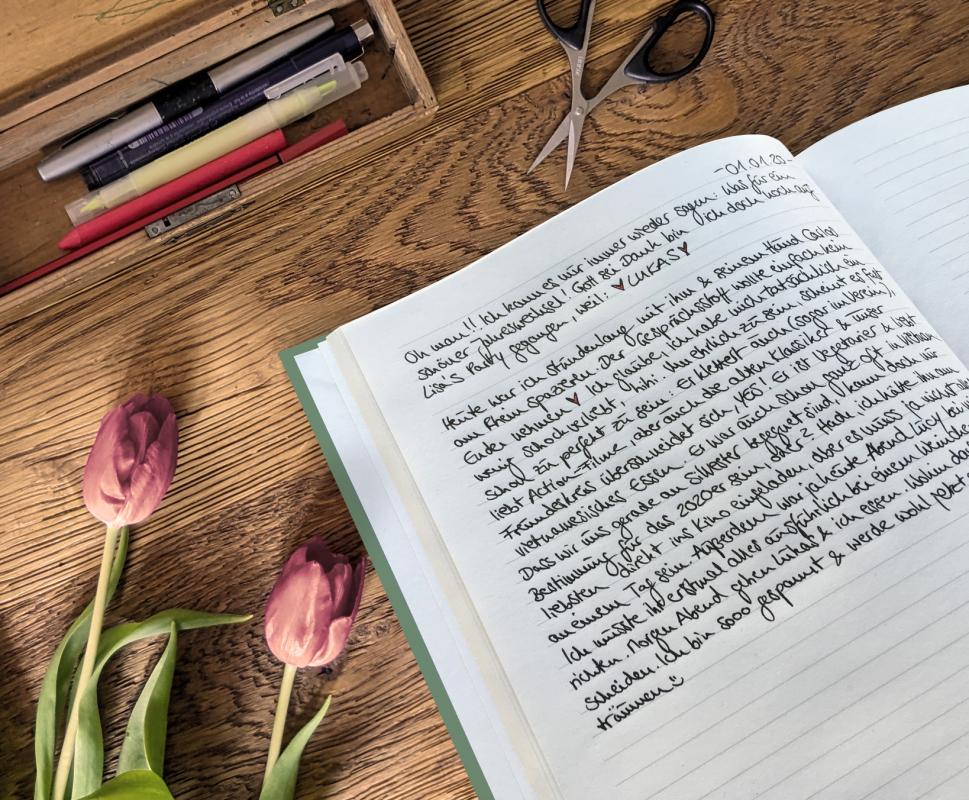 -01.01.20-
Oh man!! Ich kann es nur immer wieder sagen: Was für ein
schöner Jahreswechsel! Gott sei Dank bin ich doch noch auf
Lisas Party gegangen, weil: ♥LUKAS♥
Heute war ich stundenlang mit ihm & seinem Hund Casino
am Rhein spazieren. Der Gesprächsstoff wollte einfach kein
Ende nehmen ♥ Ich glaube, ich habe mich tatsächlich ein
wenig schockverliebt - hihi. Um ehrlich zu sein, scheint es fast
schon zu perfekt zu sein: Er klettert auch (sogar im Verein),
liebt Action-Filme, aber auch die alten Klassiker & unser
Freundeskreis überschneidet sich, YES! Er ist Vegetarier & liebt
vietnamesisches Essen. Er war auch schon ganz oft in
Dass wir uns gerade an Silvester begegnet sind, kann doch nur
Bestimmung für das 2020er sein, oder? Heute, ich hätte ihn am
liebsten direkt ins Kino eingeladen, aber es muss ja nicht alles
an einem Tag sein. Außerdem war ja heute Abend
Ich musste ihr erstmal alles ausführlich bei einem
richten. Morgen Abend gehen Lukas & ich essen. Wohin
scheiden. Ich bin sooo gespannt & werde wohl jetzt
träumen